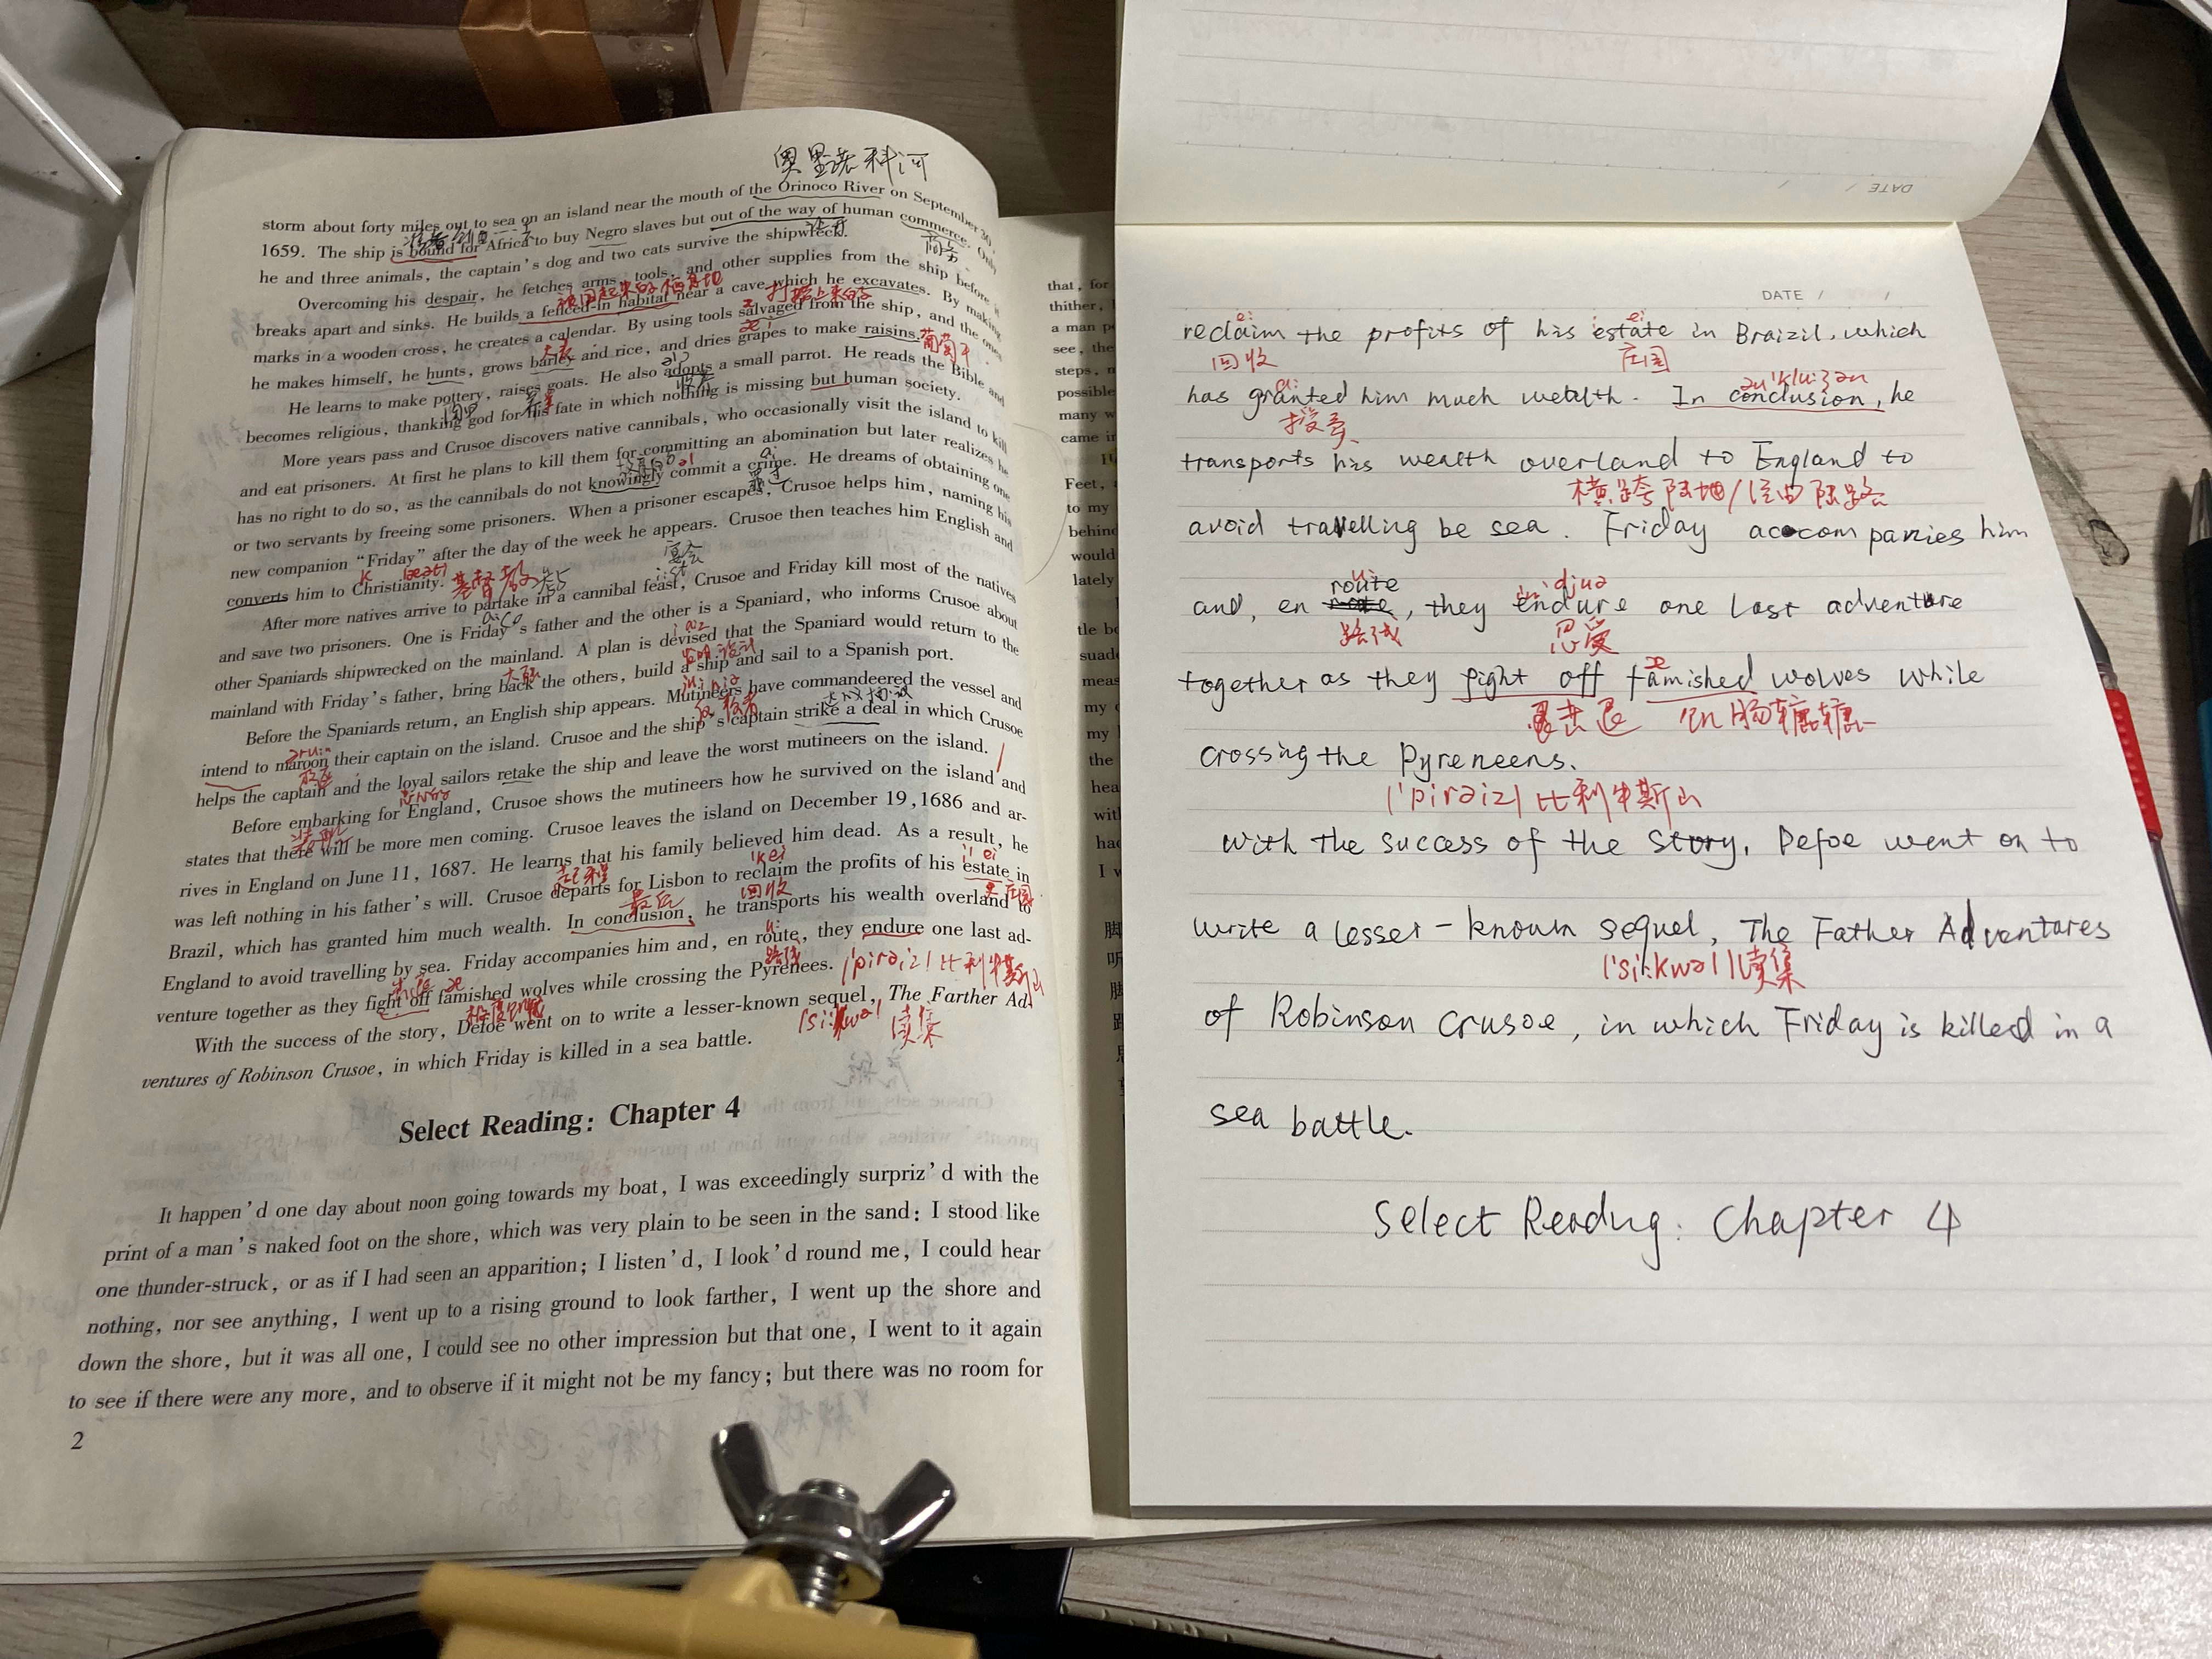 奥里诺科河
storm about forty miles out to sea on an island near the mouth of the Orinoco River on September 30,
1659. The ship is bound for Africa to buy Negro slaves but out of the way of human commerce. Only
商务
he and three animals, the captain's dog and two cats survive the shipwreck.
Overcoming his despair, he fetches arms, tools, and other supplies from the ship before it
breaks apart and sinks. He builds a fenced-in habitat near a cave which he excavates. By making
marks in a wooden cross, he creates a calendar. By using tools salvaged from the ship, and the ones
he makes himself, he hunts, grows barley and rice, and dries grapes to make raisins.
葡萄干
大麦
He learns to make pottery, raises goats. He also adopts a small parrot. He reads the Bible and
becomes religious, thanking god for his fate in which nothing is missing but human society.
More years pass and Crusoe discovers native cannibals, who occasionally visit the island to kill
and eat prisoners. At first he plans to kill them for committing an abomination but later realizes he
has no right to do so, as the cannibals do not knowingly commit a crime. He dreams of obtaining one
or two servants by freeing some prisoners. When a prisoner escapes, Crusoe helps him, naming his
new companion "Friday" after the day of the week he appears. Crusoe then teaches him English and
宴会
converts him to Christianity.
基督教
After more natives arrive to partake in a cannibal feast, Crusoe and Friday kill most of the natives
and save two prisoners. One is Friday's father and the other is a Spaniard, who informs Crusoe about
other Spaniards shipwrecked on the mainland. A plan is devised that the Spaniard would return to the
mainland with Friday's father, bring back the others, build a ship and sail to a Spanish port.
Before the Spaniards return, an English ship appears. Mutineers have commandeered the vessel and
intend to maroon their captain on the island. Crusoe and the ship's captain strike a deal in which Crusoe
helps the captain and the loyal sailors retake the ship and leave the worst mutineers on the island.
Before embarking for England, Crusoe shows the mutineers how he survived on the island and
states that there will be more men coming. Crusoe leaves the island on December 19,1686 and ar-
rives in England on June 11, 1687. He learns that his family believed him dead. As a result, he
was left nothing in his father's will. Crusoe departs for Lisbon to reclaim the profits of his estate in
起程
回收
庄园
最后
Brazil, which has granted him much wealth. In conclusion, he transports his wealth overland to
England to avoid travelling by sea. Friday accompanies him and, en route, they endure one last ad-
路线
venture together as they fight off famished wolves while crossing the Pyrenees.
|'piraiz| 比利牛斯山
With the success of the story, Defoe went on to write a lesser-known sequel, The Farther Ad-
|si:kwəl 续集
ventures of Robinson Crusoe, in which Friday is killed in a sea battle.
Select Reading: Chapter 4
It happen'd one day about noon going towards my boat, I was exceedingly surpriz'd with the
print of a man's naked foot on the shore, which was very plain to be seen in the sand: I stood like
one thunder-struck, or as if I had seen an apparition; I listen'd, I look'd round me, I could hear
nothing, nor see anything, I went up to a rising ground to look farther, I went up the shore and
down the shore, but it was all one, I could see no other impression but that one, I went to it again
to see if there were any more, and to observe if it might not be my fancy; but there was no room for
2
that, for
thither,
a man
see, the
steps,
possible
many
came
Feet,
to my
behind
would
lately
DATE / /
DATE / /
reclaim the profits of his estate in Braizil, which
回收 庄园
has granted him much wealth. In conclusion, he
授予
transports his wealth overland to England to
横跨陆地/经由陆路
avoid travelling be sea. Friday accompanies him
and, en route, they endure one last adventure
路线 忍受
together as they fight off famished wolves while
击退 饥肠辘辘
crossing the Pyreneens.
|'piraiz| 比利牛斯山
with the success of the story, Defoe went on to
write a lesser-known sequel, The Father Adventares
|'si:kwəl| 续集
of Robinson Crusoe, in which Friday is killed in a
sea battle.
Select Readng: Chapter 4